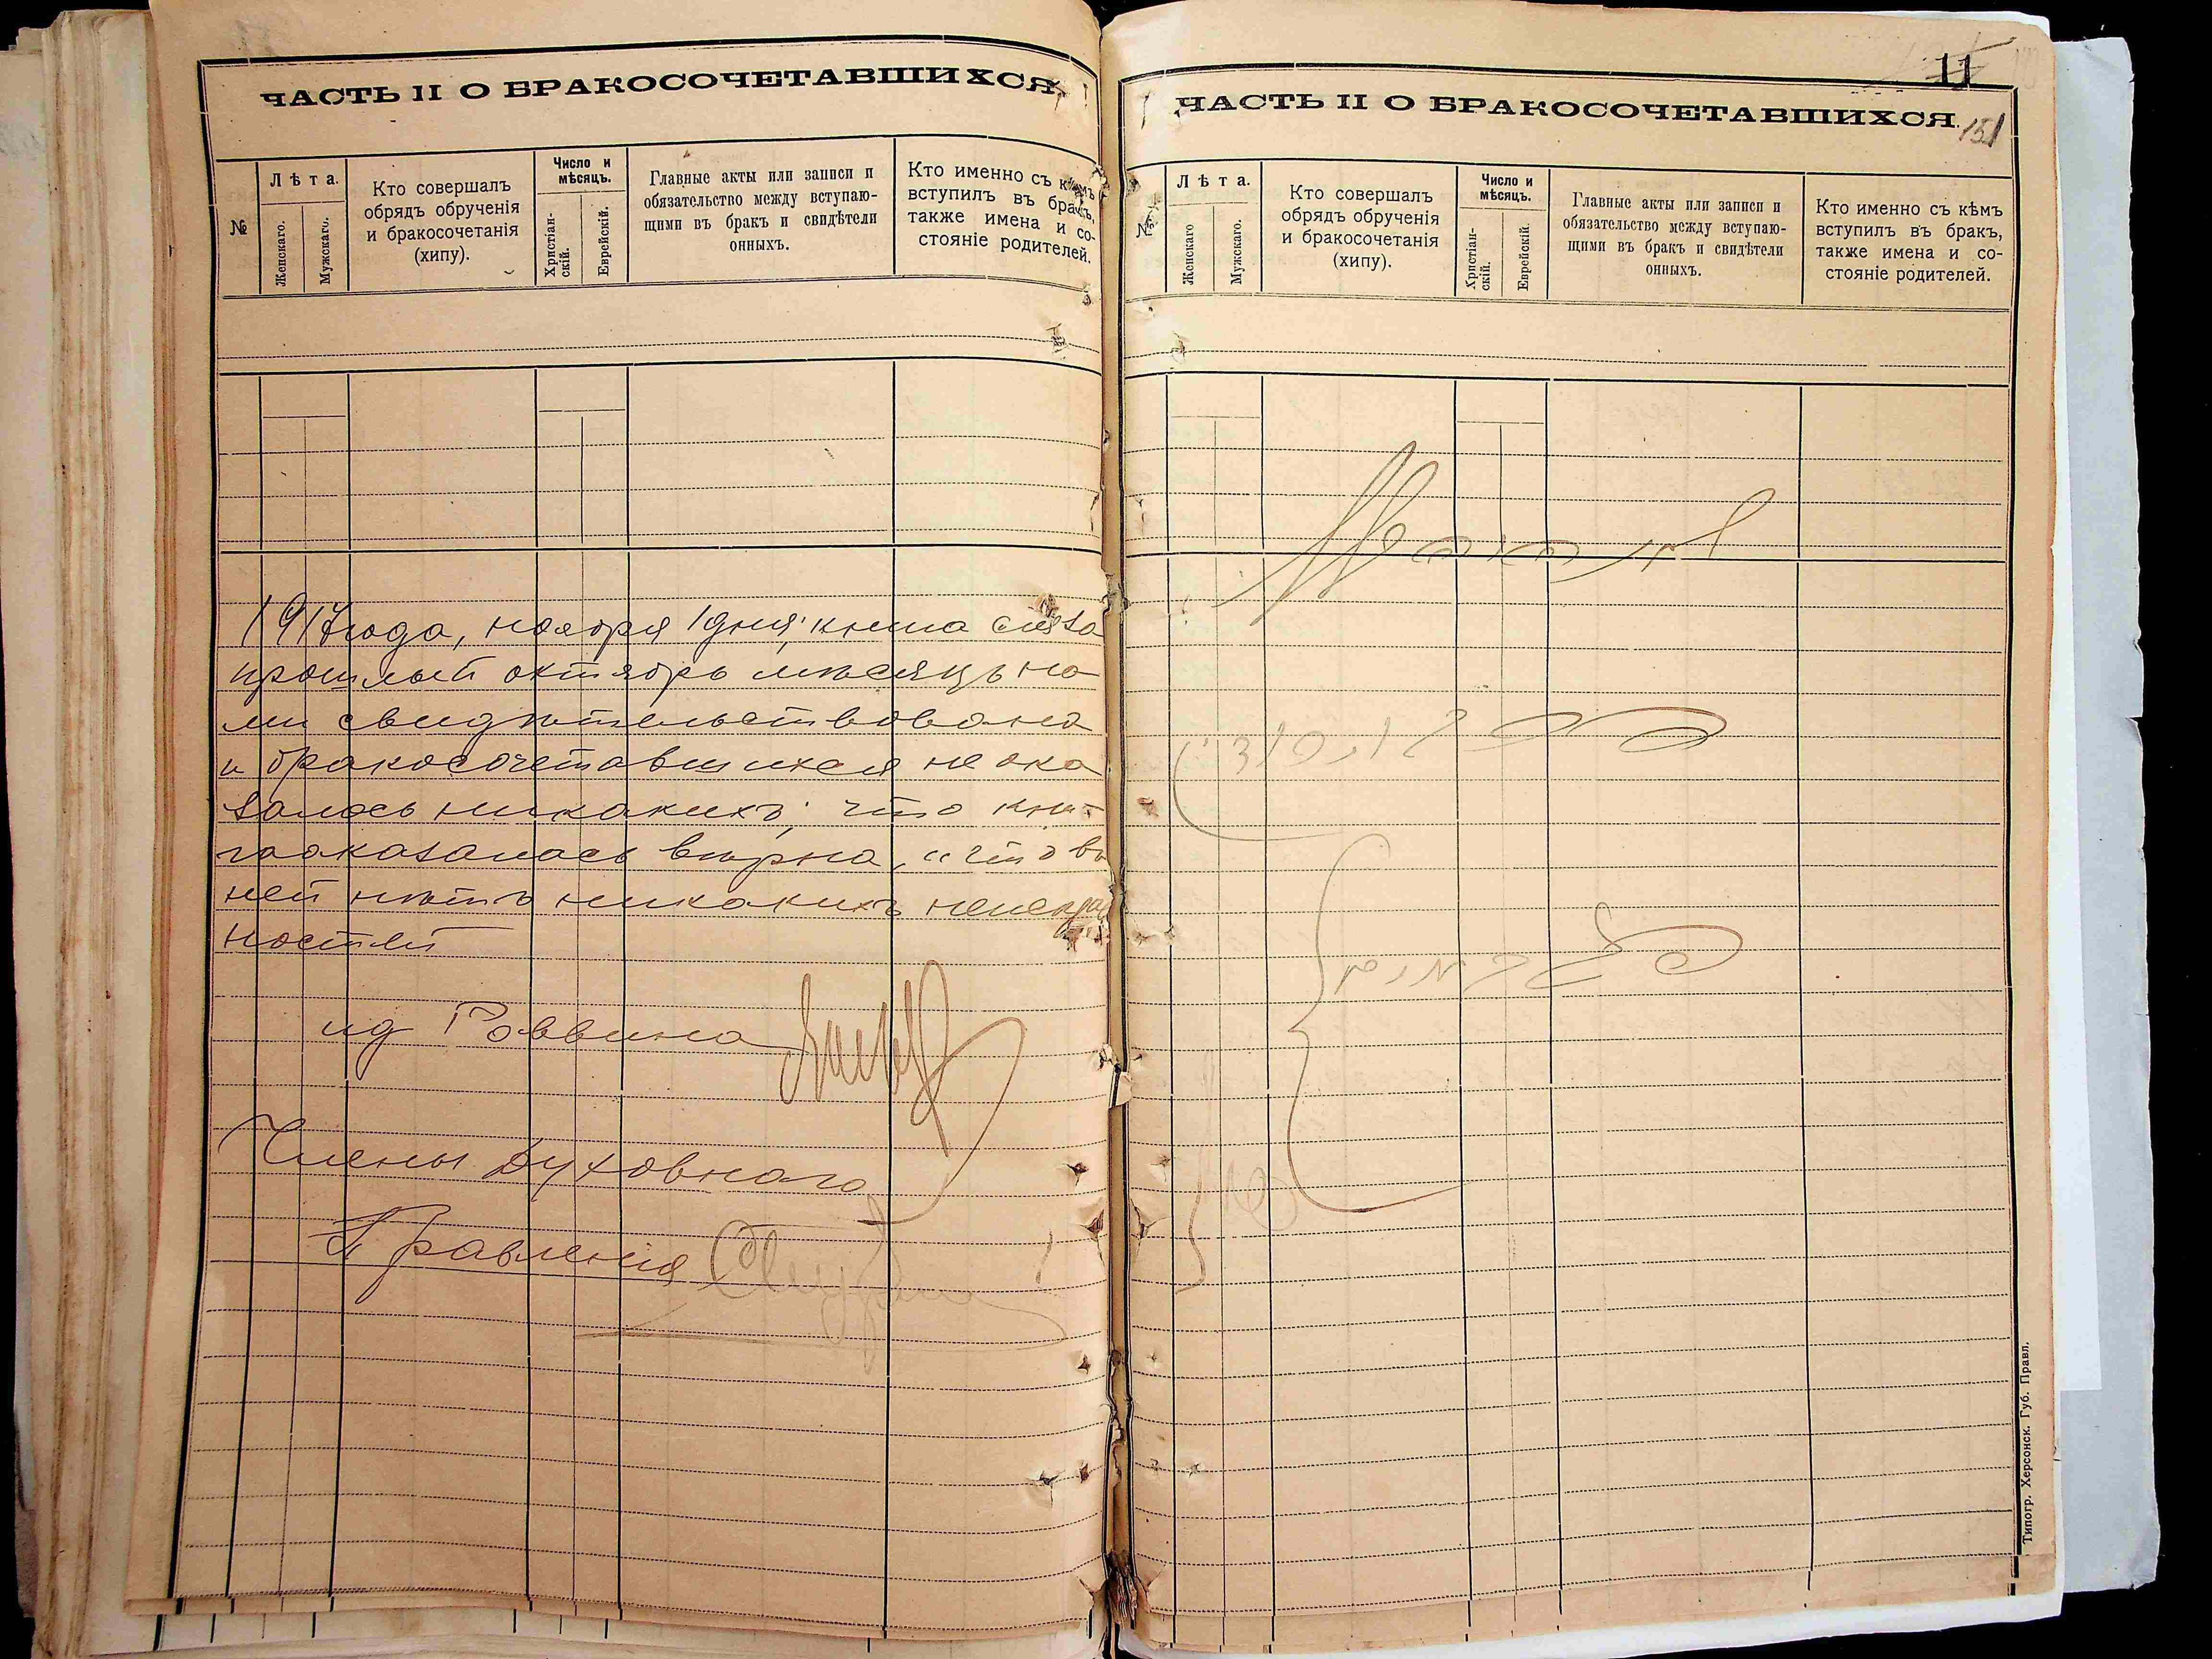 ЧАСТЬ II О БРАКОСОЧЕТАВШИХСЯ.
№
Лѣта.
Женскаго.
Мужскаго.
Кто совершалъ
обрядъ обрученія
и бракосочетанія
(хипу).
Число и
мѣсяцъ.
Христіан-
скій.
Еврейскій.
Главные акты или записи и
обязательство между вступаю-
щими въ бракъ и свидѣтели
онныхъ.
Кто именно съ кѣмъ
вступилъ въ бракъ,
также имена и со-
стояніе родителей.
1917 года, ноября 1 дня, книга сія за
прошлый октябрь мѣсяцъ на
ми свидѣтельствована
и бракосочетавшихся не ока
залось никакихъ, что кни-
га оказалась вѣрна, и что въ
ней нѣтъ никакихъ неисправ
ностей
ид Раввина
Члены Духовнаго
Правленія
11
ЧАСТЬ II О БРАКОСОЧЕТАВШИХСЯ.
151
№
Лѣта.
Женскаго
Мужскаго.
Кто совершалъ
обрядъ обрученія
и бракосочетанія
(хипу).
Число и
мѣсяцъ.
Христіан-
скій.
Еврейскій.
Главные акты или записи и
обязательство между вступаю-
щими въ бракъ и свидѣтели
онныхъ.
Кто именно съ кѣмъ
вступилъ въ бракъ,
также имена и со-
стояніе родителей.
Типогр. Херсонск. Губ. Правл.